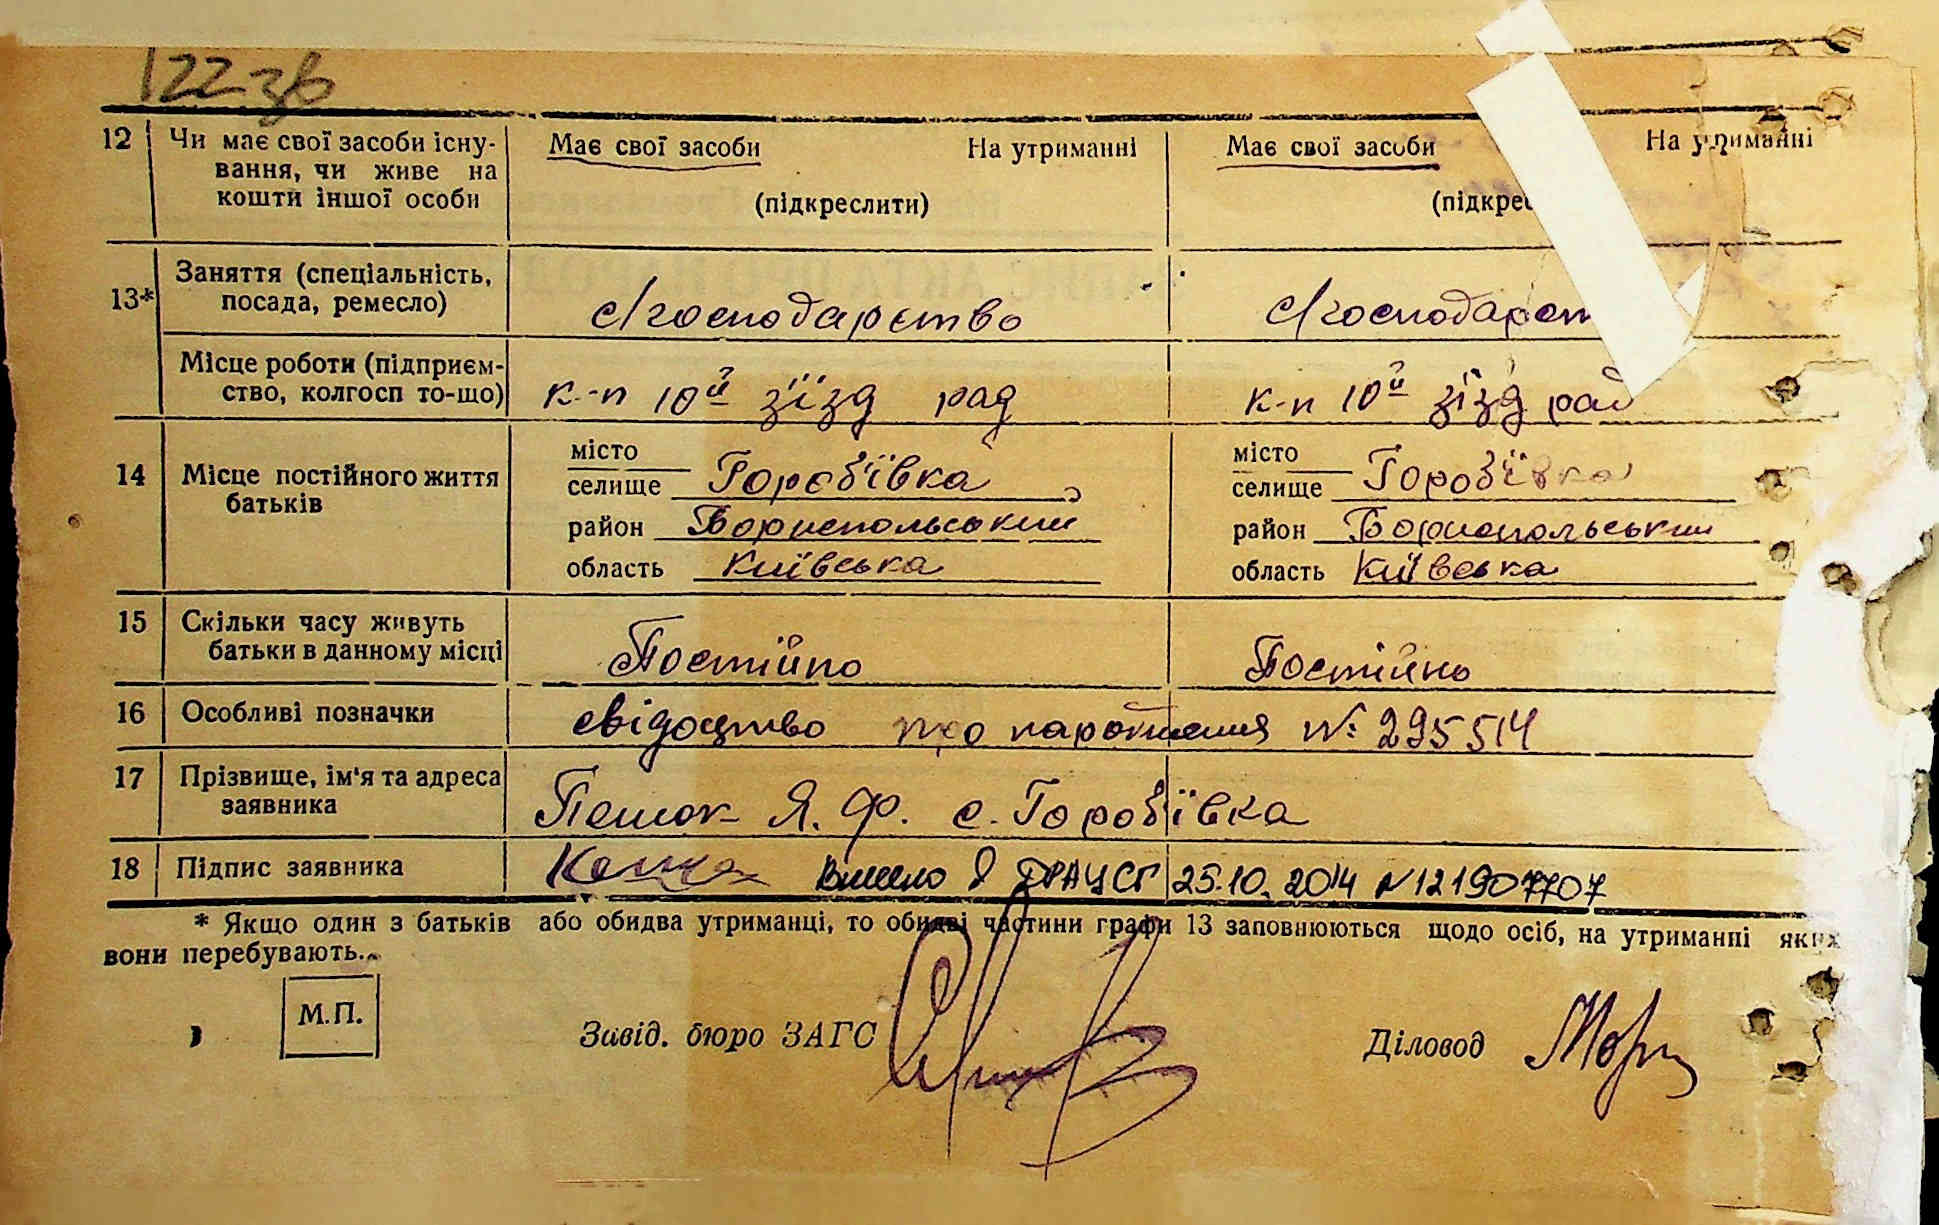 122 зв
12 Чи має свої засоби існу- Має свої засоби На утриманні Має свої засоби На утриманні
вання, чи живе на
кошти іншої особи (підкреслити) (підкрес
13* Заняття (спеціальність,
посада, ремесло) с/господарство с/господарст
Місце роботи (підприєм-
ство, колгосп то-що) к-п 10й зїзд рад к-п 10й зїзд рад
14 Місце постійного життя батьків
місто місто
селище Горобївка селище Горобївка
район Бориспольський район Бориспольський
область Київська область Київська
15 Скільки часу живуть
батьки в данному місці Постійно Постійно
16 Особливі позначки свідоцтво про народження №: 295514
17 Прізвище, ім'я та адреса
заявника Я. Ф. с. Горобївка
18 Підпис заявника Внесено в ДРАЦСГ 25.10.2014 N121907707
* Якщо один з батьків або обидва утриманці, то обидві частини графи 13 заповнюються щодо осіб, на утриманні яких
вони перебувають.
М.П.
Завід. бюро ЗАГС Діловод